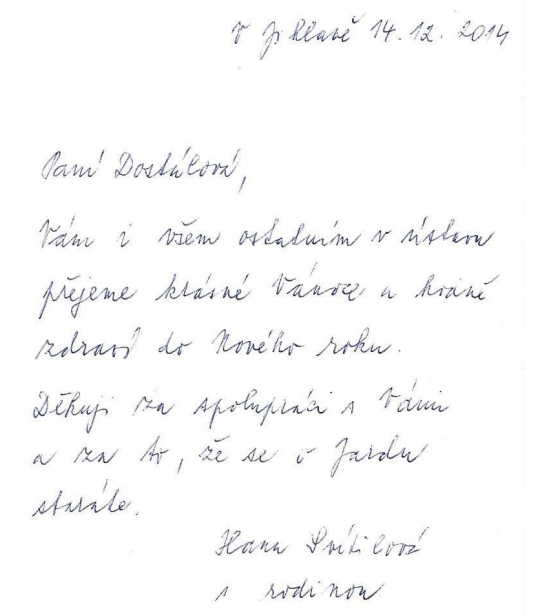 V Jihlavě 14.12.2014
Paní Dostálová,
Vám i všem ostatním v ústavu
přejeme krásné Vánoce a hodně
zdraví do Nového roku.
Děkuji za spolupráci s Vámi
a za to, že se o Jardu
staráte.
Hana Svítilová
s rodinou